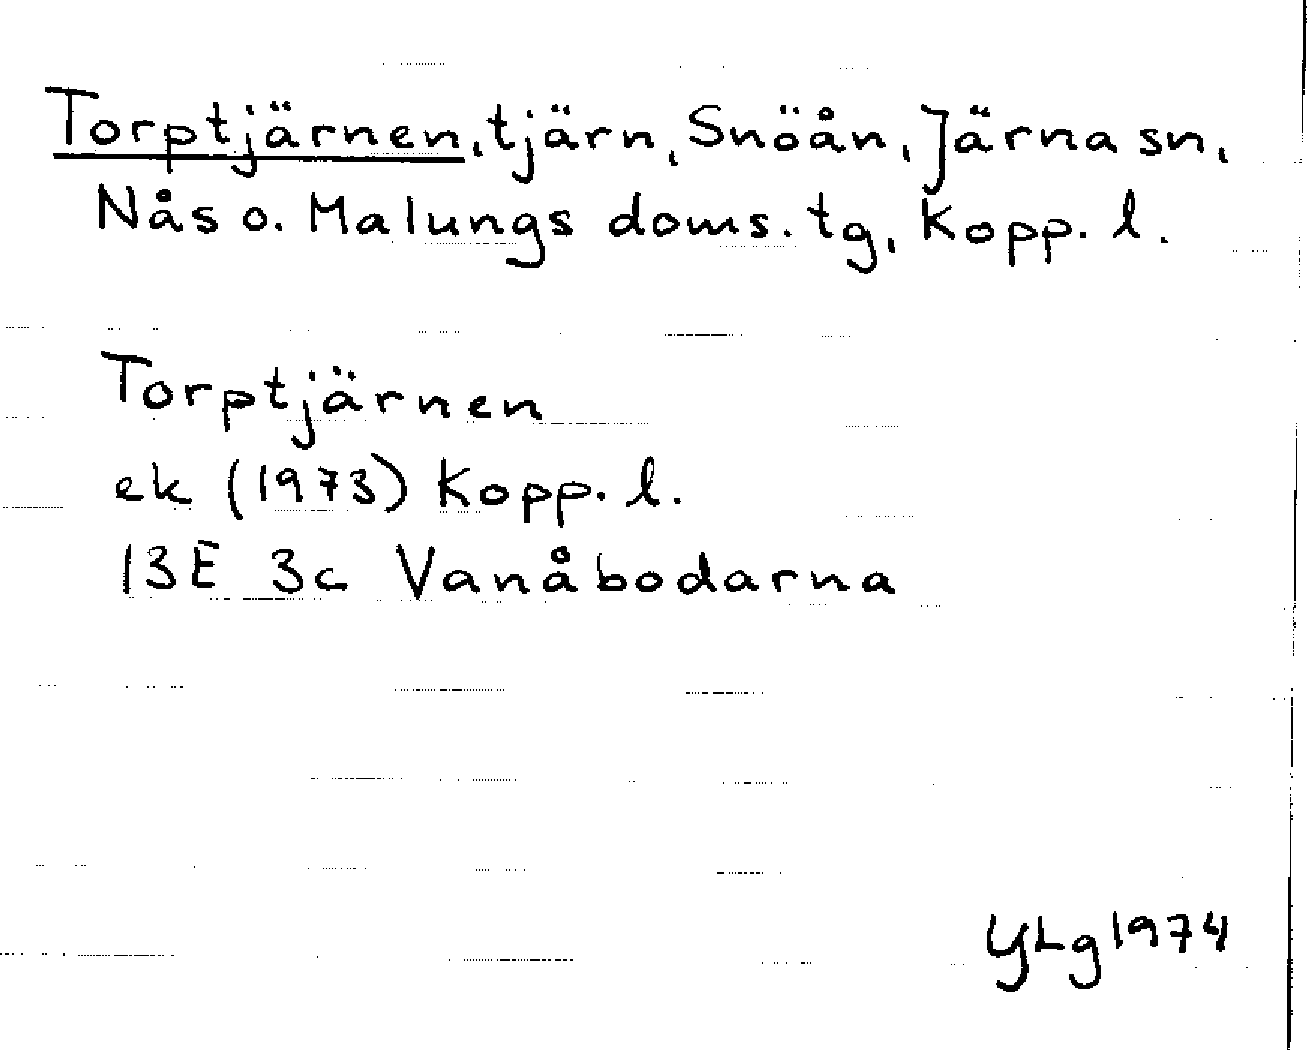 Torptjärnen, tjärn, Snöån, Järna sn,
Nås o. Malungs doms. tg, Kopp. l.
Torptjärnen
ek (1973) Kopp. l.
13E 3c Vanåbodarna
YLg 1974